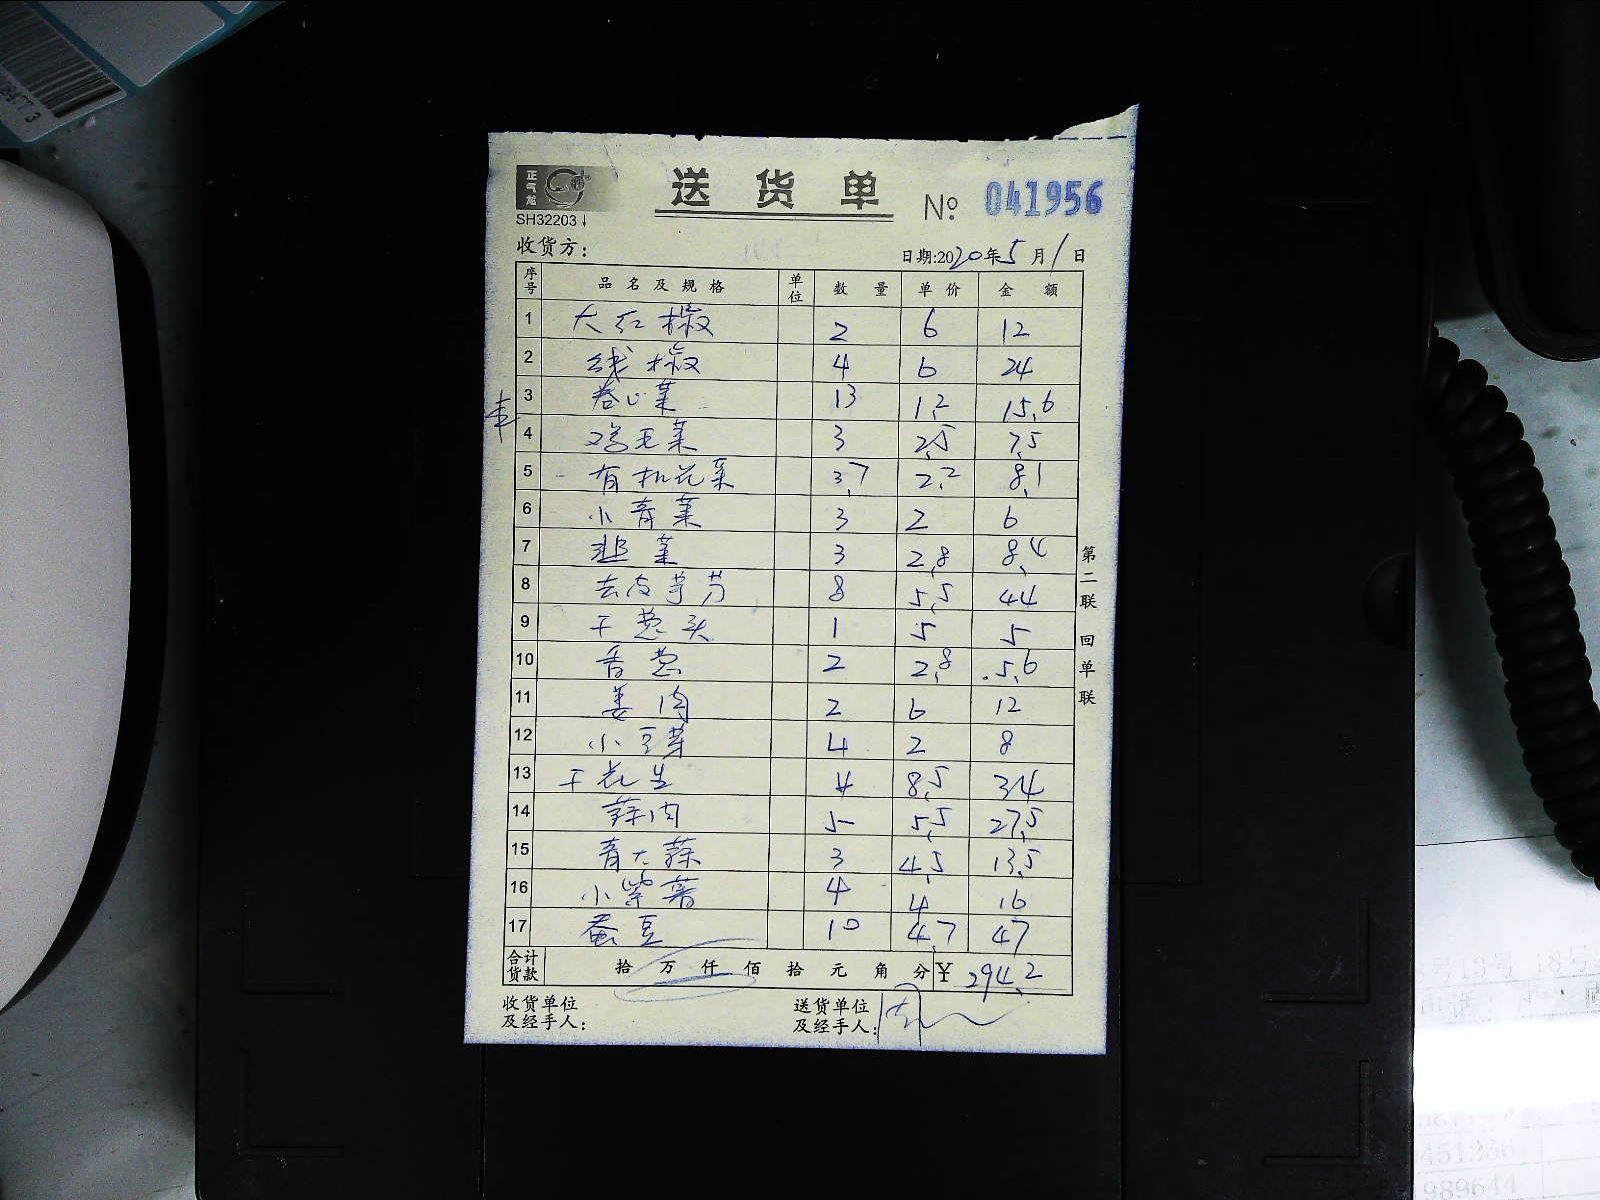 正气龙
SH32203
送货单 № 041956
收货方: 日期:2020年5月1日
序号 品名及规格 单位 数量 单价 金额
1 大红椒 2 6 12
2 线椒 4 6 24
3 卷心菜 13 1.2 15.6
4 鸡毛菜 3 2.5 7.5
5 有机花菜 3.7 2.2 8.1
6 小青菜 3 2 6
7 韭菜 3 2.8 8.4
8 去皮芋艿 8 5.5 44
9 干葱头 1 5 5
10 香葱 2 2.8 5.6
11 姜肉 2 6 12
12 小豆芽 4 2 8
13 干花生 4 8.5 34
14 蒜肉 5 5.5 27.5
15 青大蒜 3 4.5 13.5
16 小紫薯 4 4 16
17 蚕豆 10 4.7 47
合计货款 拾万仟佰拾元角分 ¥ 294.2
收货单位及经手人: 送货单位及经手人:
第二联 回单联